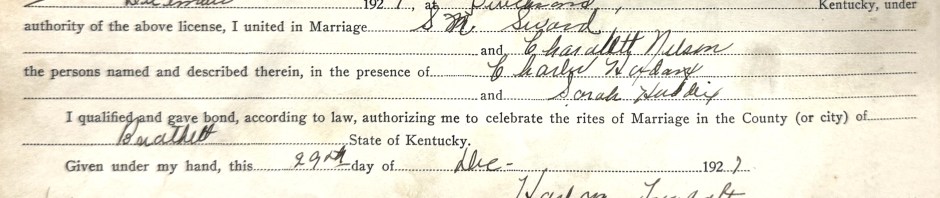 192 7, at Kentucky, under
authority of the above license, I united in Marriage S M
and Charalett Nelson
the persons named and described therein, in the presence of Charlie
and Sarah Haddix
I qualified and gave bond, according to law, authorizing me to celebrate the rites of Marriage in the County (or city) of
Breathett State of Kentucky.
Given under my hand, this 29th day of Dec- 192 7